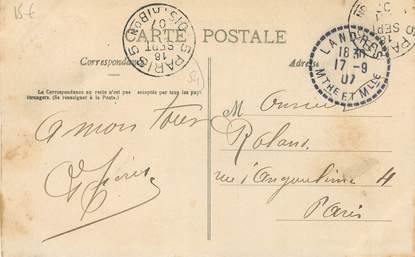 15 €
CARTE POSTALE
Correspondance
Adresse
La Correspondance au recto n'est pas acceptée par tous les pays
étrangers. (Se renseigner à la Poste.)
PARIS
18
SEPT
07
LANDRES
18 30
17-9
07
MTHE ET MLLE
a mon tour
Monsieur
Roland
rue d'Angoulême 4
Paris